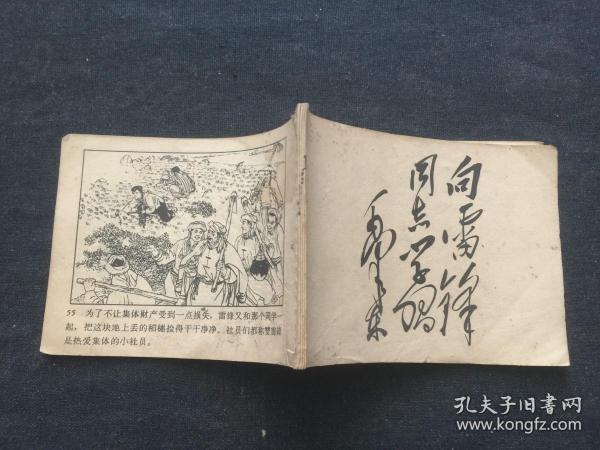 55 为了不让集体财产受到一点损失，雷锋又和那个同学一
起，把这块地上丢的稻穗拾得干干净净。社员们都称赞雷锋
是热爱集体的小社员。
向雷锋
同志学习
毛泽东
孔夫子旧书网
www.kongfz.com